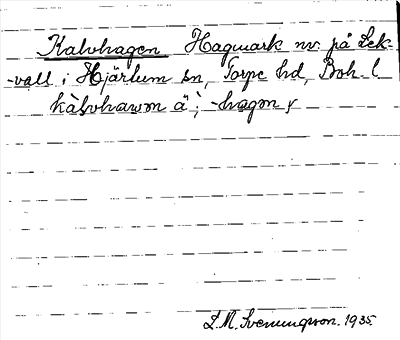 Kalvhagen Hagmark nv. på Lek-
-vall i Hjärtum sn, Torpe hd, Boh. l.
kàlvhawən ä`; -hagən
L.M. Svenungsson. 1935.